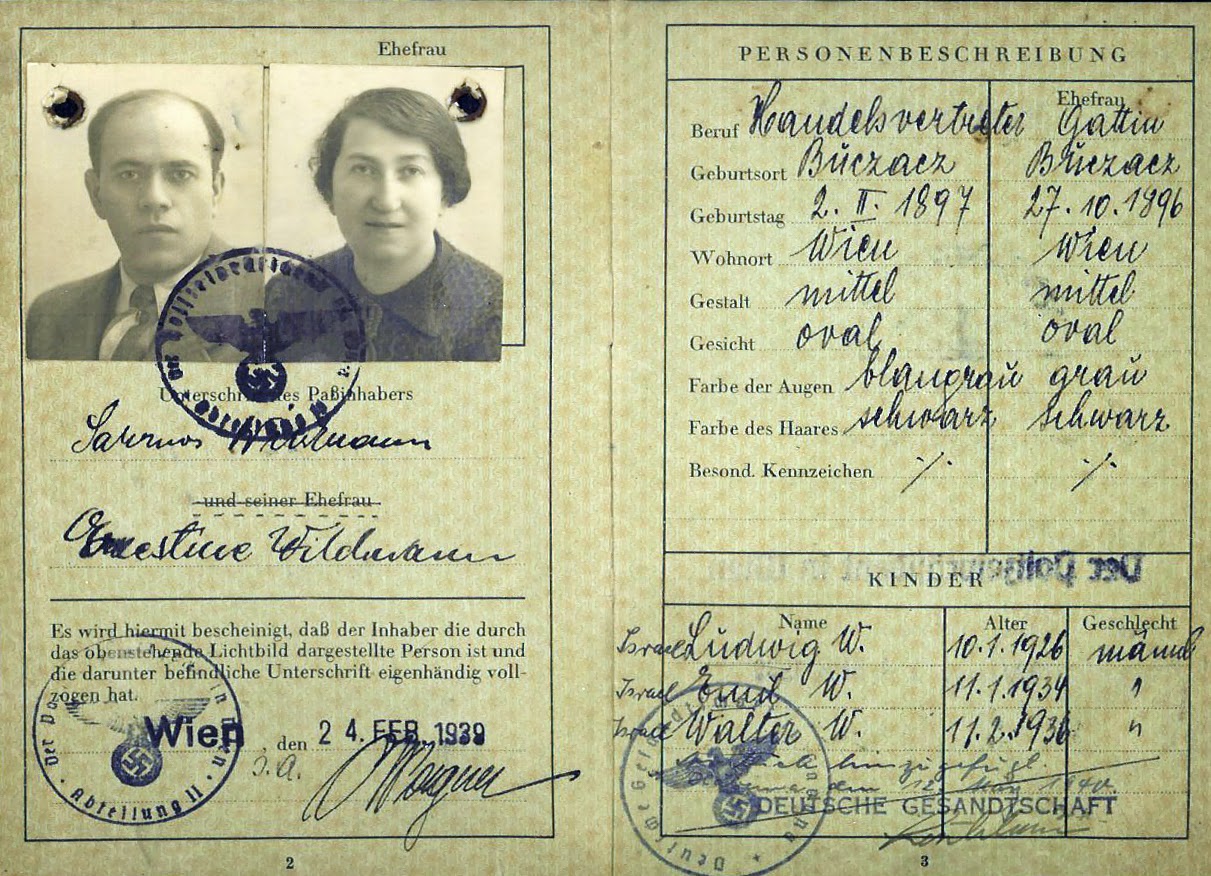 Ehefrau
Der Polizeipräsident in Wien
Abteilung II
Unterschrift des Paßinhabers
Wildmann
und seiner Ehefrau
Ernestine Wildmann
Es wird hiermit bescheinigt, daß der Inhaber die durch
das obenstehende Lichtbild dargestellte Person ist und
die darunter befindliche Unterschrift eigenhändig voll-
zogen hat.
Wien, den 24. FEB. 1939
J. A.
Wagner
Der Polizeipräsident in Wien
Abteilung II
2
PERSONENBESCHREIBUNG
Ehefrau
Beruf Handelsvertreter Gattin
Geburtsort Buczacz Buczacz
Geburtstag 2. II. 1897 27.10.1896
Wohnort Wien Wien
Gestalt mittel mittel
Gesicht oval oval
Farbe der Augen blaugrau grau
Farbe des Haares schwarz schwarz
Besond. Kennzeichen ./. ./.
KINDER
Name Alter Geschlecht
Israel Ludwig W. 10.1.1926 männl
Israel Emil W. 11.1.1934 "
Israel Walter W. 11.2.1936 "
hinzugefügt.
den 12. 1940
DEUTSCHE GESANDTSCHAFT
Deutsche Gesandtschaft
3